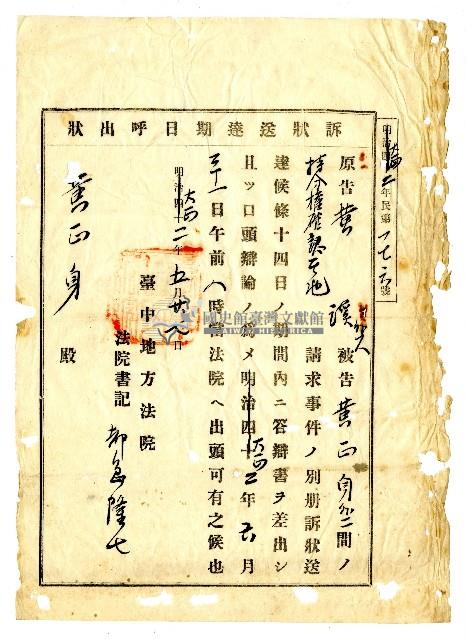 訴狀送達期日呼出狀
明治四大正二年民第一七六號
原告黃 溪 被告黃正身 間ノ
持分權確認 請求事件ノ別册訴狀送
達候條十四日ノ期間內ニ答辯書ヲ差出シ
且ツ口頭辯論ノ爲メ明治四十大正二年 月
三十一日午前八時當法院ヘ出頭可有之候也
明治四十大正二年五月廿八日
臺中地方法院
法院書記 隆七
黃正身 殿
國史館臺灣文獻館
TAIWAN HISTORICA